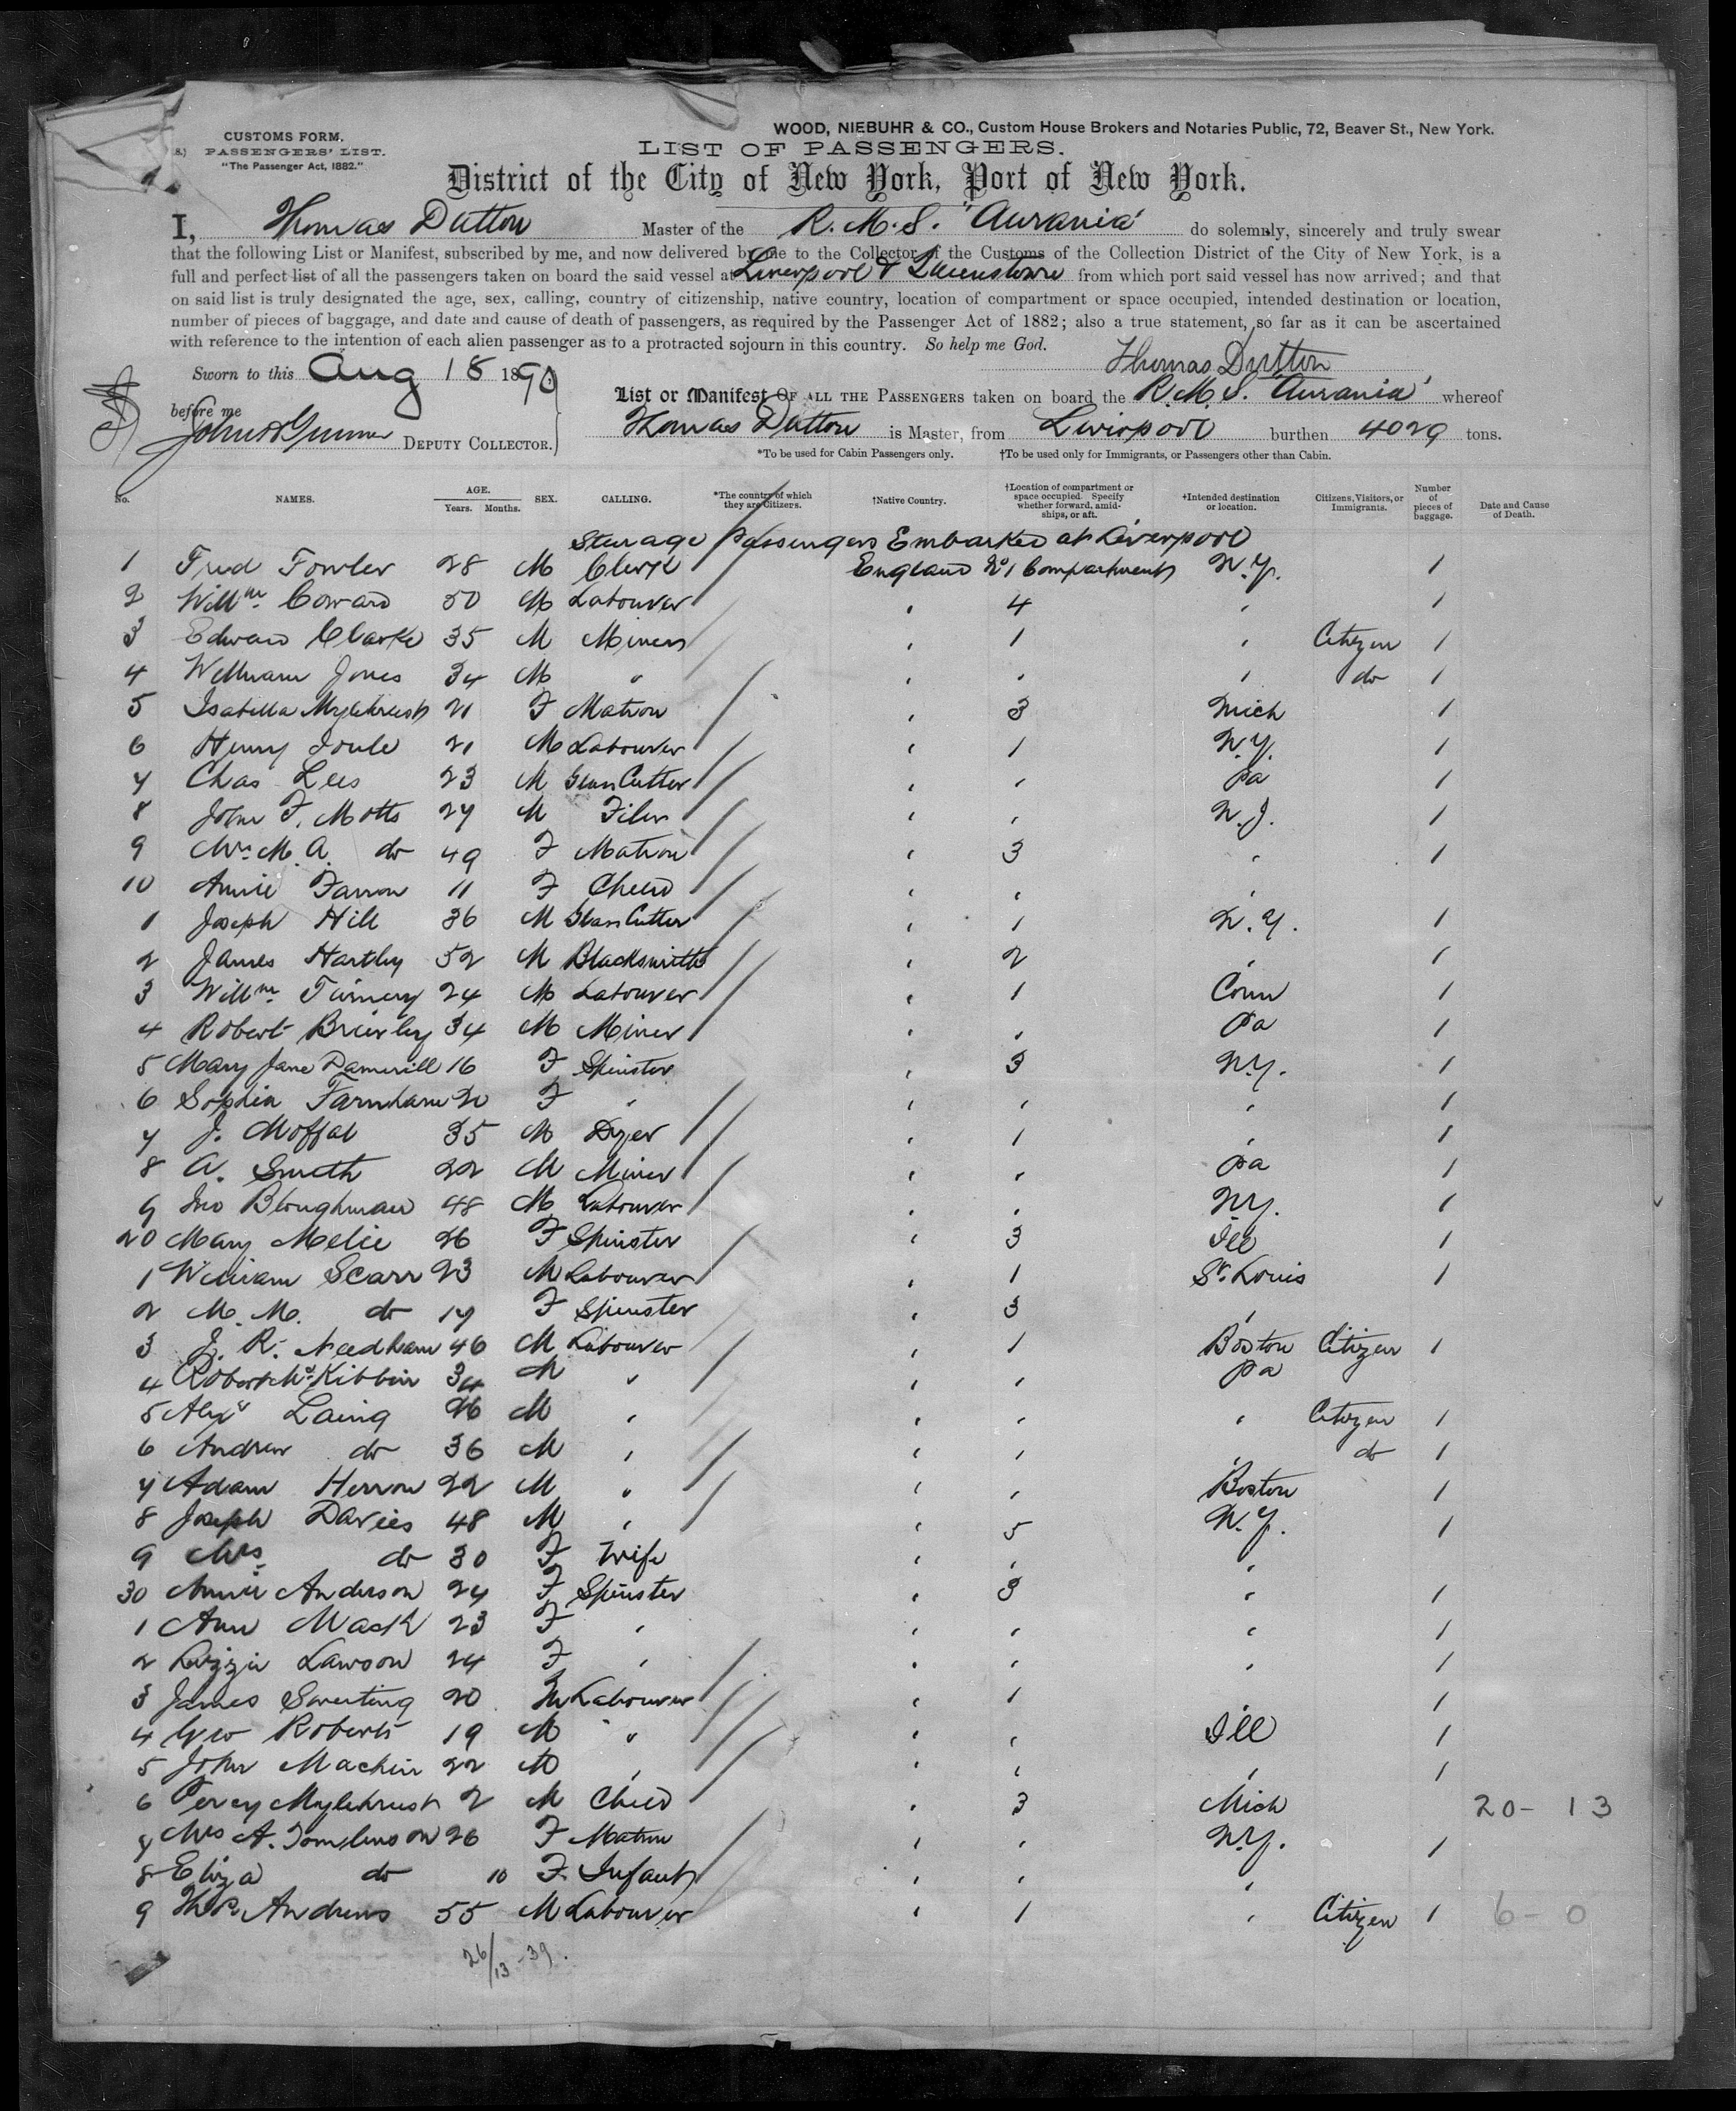 WOOD, NIEBUHR & CO., Custom House Brokers and Notaries Public, 72, Beaver St., New York.
CUSTOMS FORM.
PASSENGERS' LIST.
"The Passenger Act, 1882."
LIST OF PASSENGERS.
District of the City of New York, Port of New York.
I, Thomas Dutton Master of the R.M.S. "Aurania" do solemnly, sincerely and truly swear
that the following List or Manifest, subscribed by me, and now delivered by me to the Collector of the Customs of the Collection District of the City of New York, is a
full and perfect list of all the passengers taken on board the said vessel at Liverpool & Queenstown from which port said vessel has now arrived; and that
on said list is truly designated the age, sex, calling, country of citizenship, native country, location of compartment or space occupied, intended destination or location,
number of pieces of baggage, and date and cause of death of passengers, as required by the Passenger Act of 1882; also a true statement, so far as it can be ascertained
with reference to the intention of each alien passenger as to a protracted sojourn in this country. So help me God.
Thomas Dutton
Sworn to this Aug 18 1890
before me
DEPUTY COLLECTOR.
List or Manifest OF ALL THE PASSENGERS taken on board the R.M.S. "Aurania" whereof
Thomas Dutton is Master, from Liverpool burthen 4029 tons.
*To be used for Cabin Passengers only. †To be used only for Immigrants, or Passengers other than Cabin.
No. NAMES. AGE. Years. Months. SEX. CALLING. *The country of which they are Citizens. †Native Country. †Location of compartment or space occupied. Specify whether forward, amidships, or aft. †Intended destination or location. Citizens, Visitors, or Immigrants. Number of pieces of baggage. Date and Cause of Death.
Steerage Passengers Embarked at Liverpool
1 Fred Fowler 28 M Clerk England No 1 Compartment N.Y. 1
2 Willm Coward 50 M Labourer " 4 " 1
3 Edward Clarke 35 M Miner " 1 " Citizen 1
4 William Jones 34 M " " " " do 1
5 Isabella Mylchreest 21 F Matron " 3 Mich 1
6 Henry Joule 21 M Labourer " 1 N.Y. 1
7 Chas Lees 23 M Glass Cutter " " Pa 1
8 John F. Motts 27 M Filer " " N.J. 1
9 Mrs M.A. do 49 F Matron " 3 " 1
10 Annie Farron 11 F Child " " "
1 Joseph Hill 36 M Glass Cutter " 1 N.Y. 1
2 James Hartley 52 M Blacksmith " 2 " 1
3 Willm 24 M Labourer " 1 Conn 1
4 Robert Brierley 34 M Miner " " Pa 1
5 Mary Jane Damerill 16 F Spinster " 3 N.Y. 1
6 Sophia Farnham 20 F " " " " 1
7 J. Moffat 35 M Dyer " 1 " 1
8 A. Smith 22 M Miner " " Pa 1
9 Jno Bloughman 48 M Labourer " " N.Y. 1
20 Mary Melie 26 F Spinster " 3 Ill 1
1 William Scarr 23 M Labourer " 1 St. Louis 1
2 M.M. do 17 F Spinster " 3 "
3 J. R. Needham 46 M Labourer " 1 Boston Citizen 1
4 Robert McKibbin 34 M " " " Pa
5 Alexr Laing 26 M " " " " Citizen 1
6 Andrew do 36 M " " " " do 1
7 Adam Herron 22 M " " " Boston 1
8 Joseph Davies 48 M " " 5 N.Y. 1
9 Mrs do 30 F Wife " " "
30 Annie Anderson 24 F Spinster " 3 " 1
1 Ann Mack 23 F " " " " 1
2 Lizzie Lawson 24 F " " " " 1
3 James Sweeting 20 M Labourer " 1 1
4 Geo Roberts 19 M " " " Ill 1
5 John Machin 22 M " " " " 1
6 Percy Mylchreest 2 M Child " 3 Mich 20-13
7 Mrs A. Tomlinson 26 F Matron " " N.Y. 1
8 Eliza do 10 F. Infant " " "
9 Andrews 55 M Labourer " 1 " Citizen 1 6-0
26/13-39.